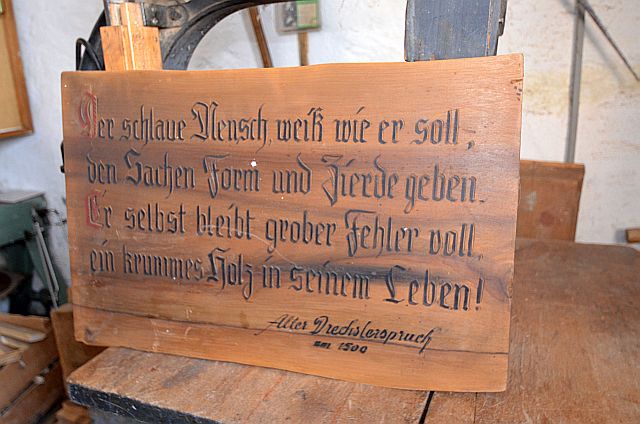 Der schlaue Mensch, weiß wie er soll,
den Sachen Form und Zierde geben.
Er selbst bleibt grober Fehler voll,
ein krummes Holz in seinem Leben!
Alter Drechslerspruch
um 1500